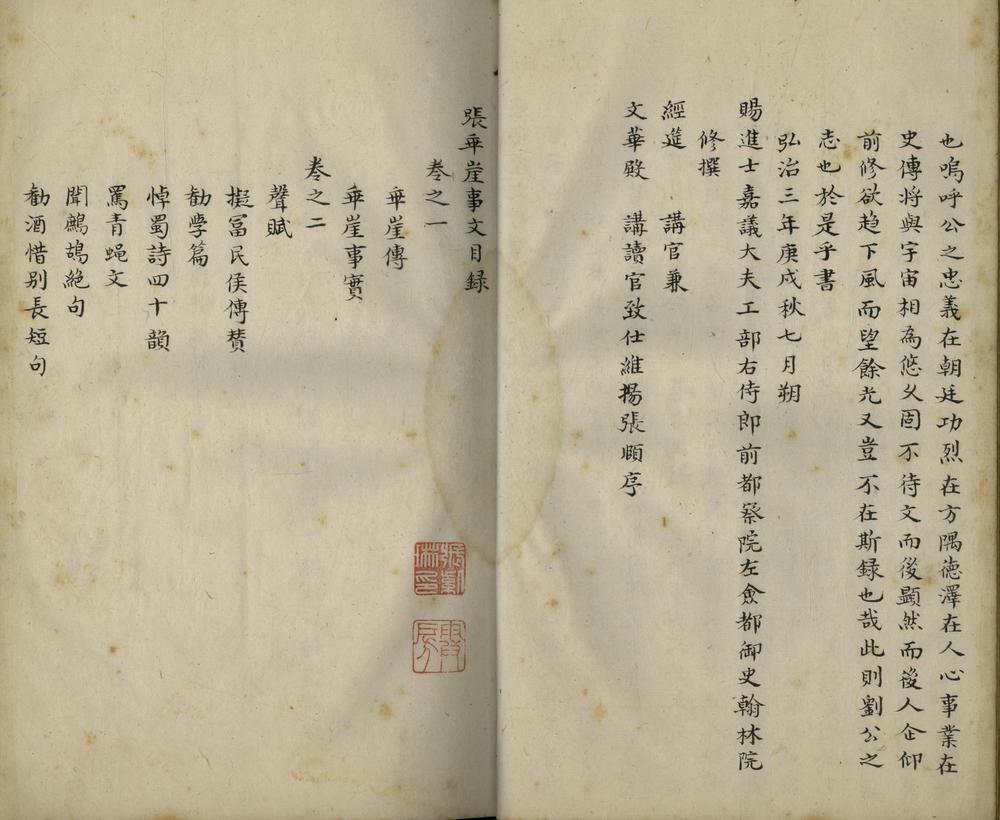 也嗚呼公之忠義在朝廷功烈在方隅徳澤在人心事業在
史傳將與宇宙相為悠久固不待文而後顯然而後人企仰
前修欲趋下風而望餘光又豈不在斯録也哉此則劉公之
志也於是乎書
弘治三年庚戌秋七月朔
賜進士嘉議大夫工部右侍郎前都察院左僉都御史翰林院
修撰
經筵 講官兼
文華殿 講讀官致仕維揚張頤序
張乖崖事文目録
卷之一
乖崖傳
乖崖事實
卷之二
聲賦
擬富民侯傳賛
勧學篇
悼蜀詩四十韻
罵青蝇文
聞鷓鴣絶句
勧酒惜別長短句